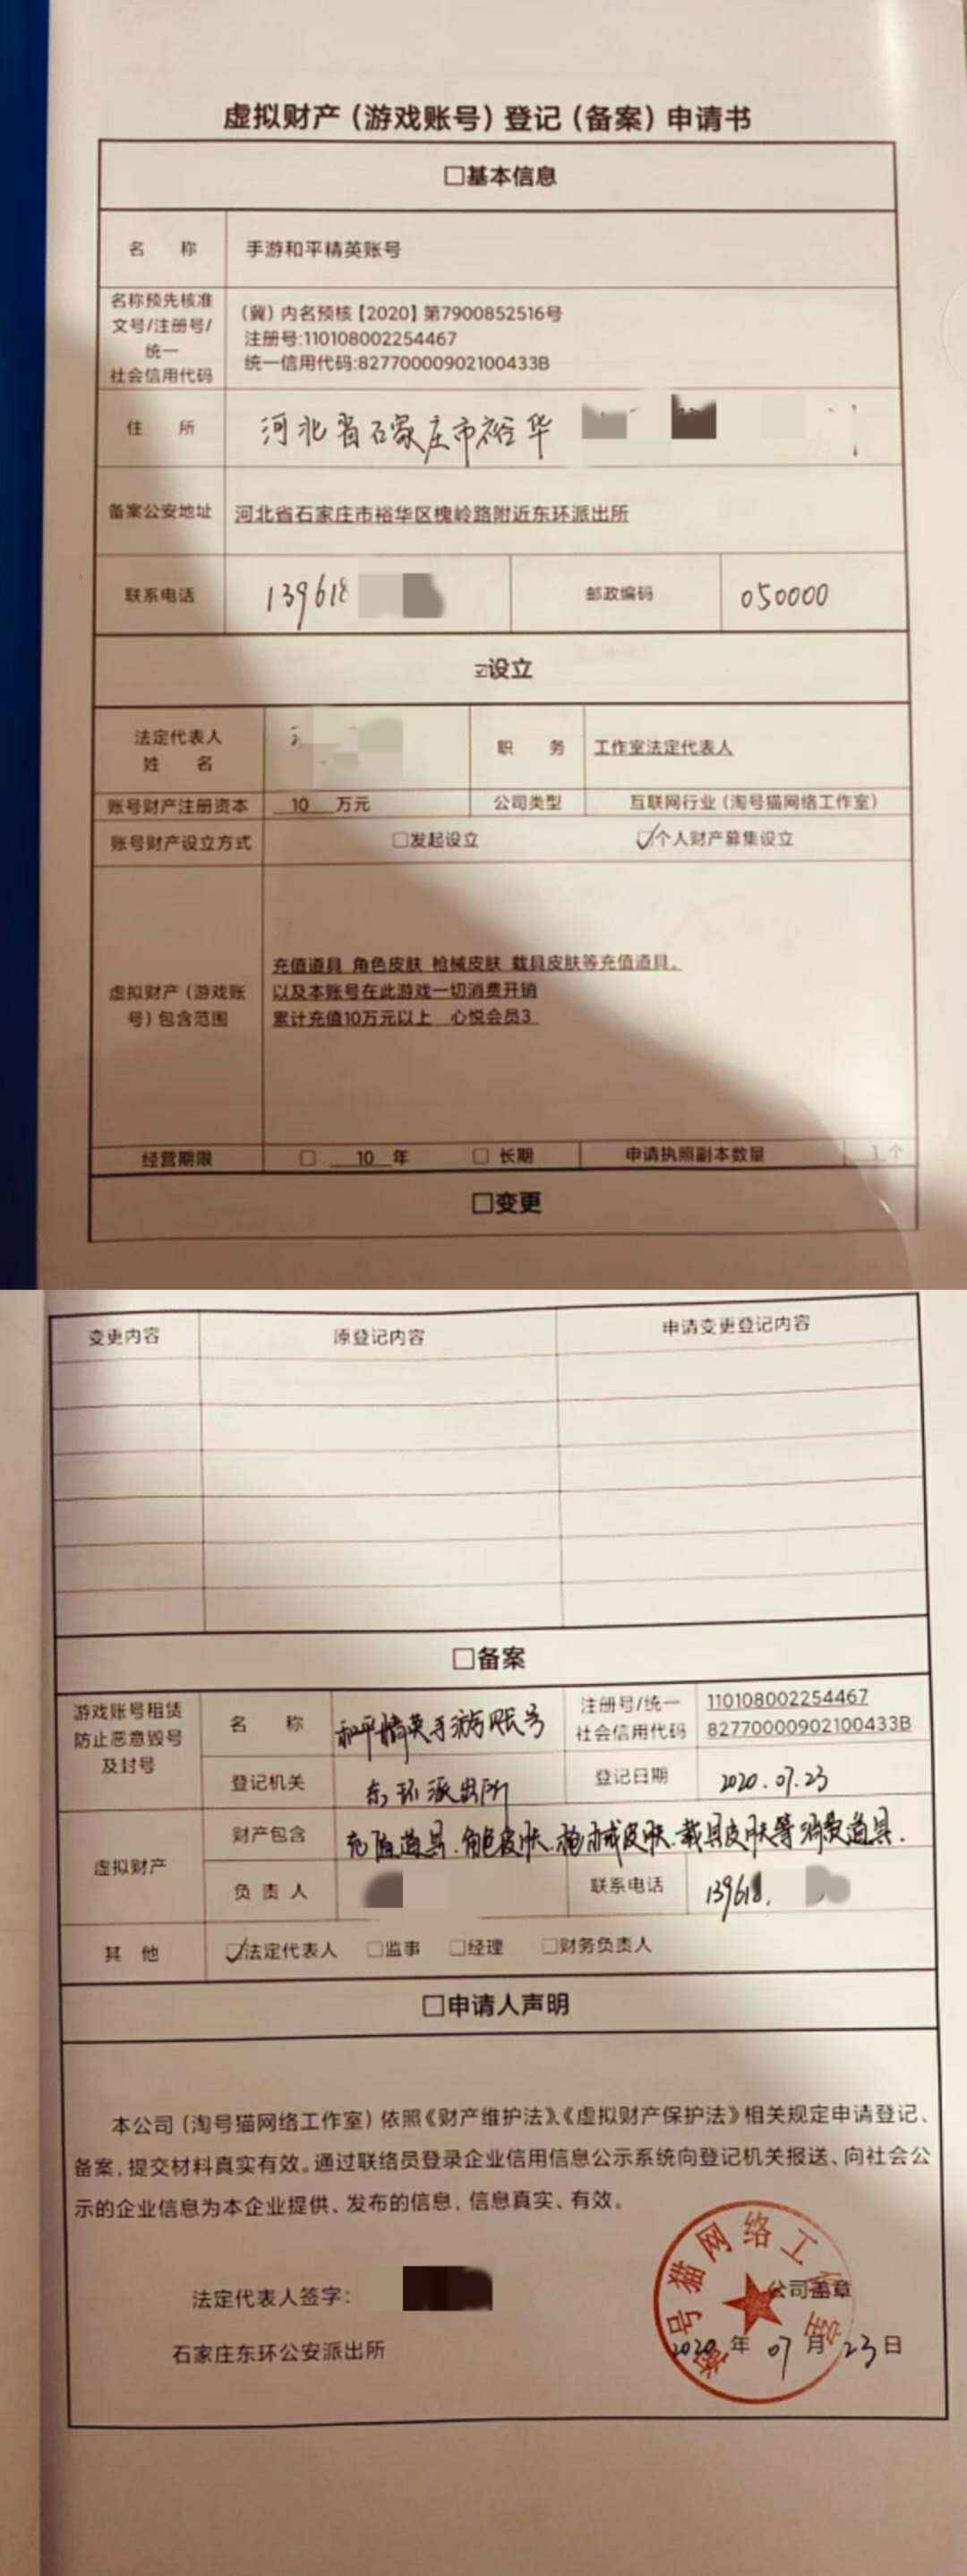 虚拟财产（游戏账号）登记（备案）申请书
□基本信息
名 称 手游和平精英账号
名称预先核准
文号/注册号/
统一
社会信用代码
（冀）内名预核【2020】第7900852516号
注册号:110108002254467
统一信用代码:82770000902100433B
住 所 河北省石家庄市裕华
备案公安地址 河北省石家庄市裕华区槐岭路附近东环派出所
联系电话 139618 邮政编码 050000
☑设立
法定代表人
姓 名
职 务 工作室法定代表人
账号财产注册资本 10 万元 公司类型 互联网行业（淘号猫网络工作室）
账号财产设立方式 □发起设立 ☑个人财产募集设立
虚拟财产（游戏账
号）包含范围
充值道具 角色皮肤 枪械皮肤 载具皮肤等充值道具。
以及本账号在此游戏一切消费开销
累计充值10万元以上 心悦会员3
经营期限 □ 10 年 □ 长期 申请执照副本数量 1 个
□变更
变更内容 原登记内容 申请变更登记内容
□备案
游戏账号租赁
防止恶意毁号
及封号
名 称 和平精英手游账号
注册号/统一
社会信用代码
110108002254467
82770000902100433B
登记机关 东环派出所 登记日期 2020.07.23
虚拟财产
财产包含 充值道具.角色皮肤.枪械皮肤.载具皮肤等消费道具.
负 责 人 联系电话 139618.
其 他 ☑法定代表人 □监事 □经理 □财务负责人
□申请人声明
本公司（淘号猫网络工作室）依照《财产维护法》、《虚拟财产保护法》相关规定申请登记、
备案，提交材料真实有效。通过联络员登录企业信用信息公示系统向登记机关报送、向社会公
示的企业信息为本企业提供、发布的信息，信息真实、有效。
法定代表人签字：
公司盖章
石家庄东环公安派出所
2020 年 07 月 23 日
淘号猫网络工作室